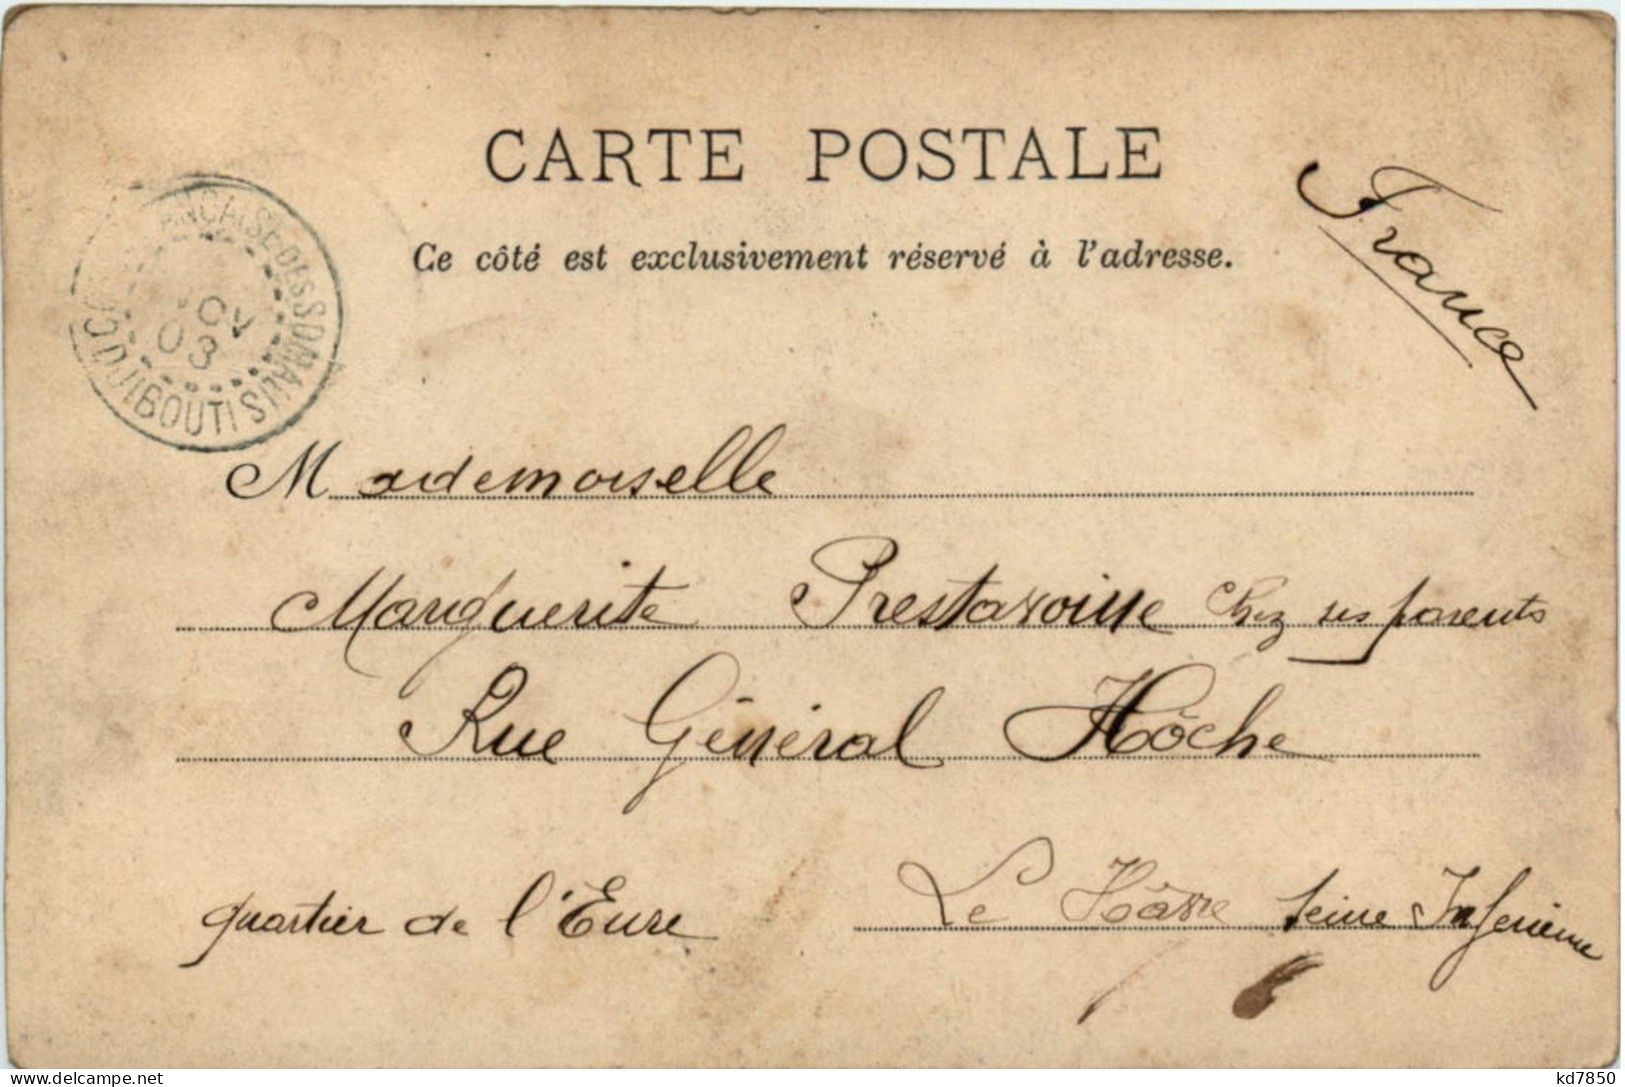 CARTE POSTALE
Ce côté est exclusivement réservé à l'adresse.
France
DES SOMALIS
DJIBOUTI
03
Mademoiselle
Marguerite Prestavoine chez ses parents
Rue Général Hôche
quartier de l'Eure
Le Hâvre Seine Inférieure
kd7850